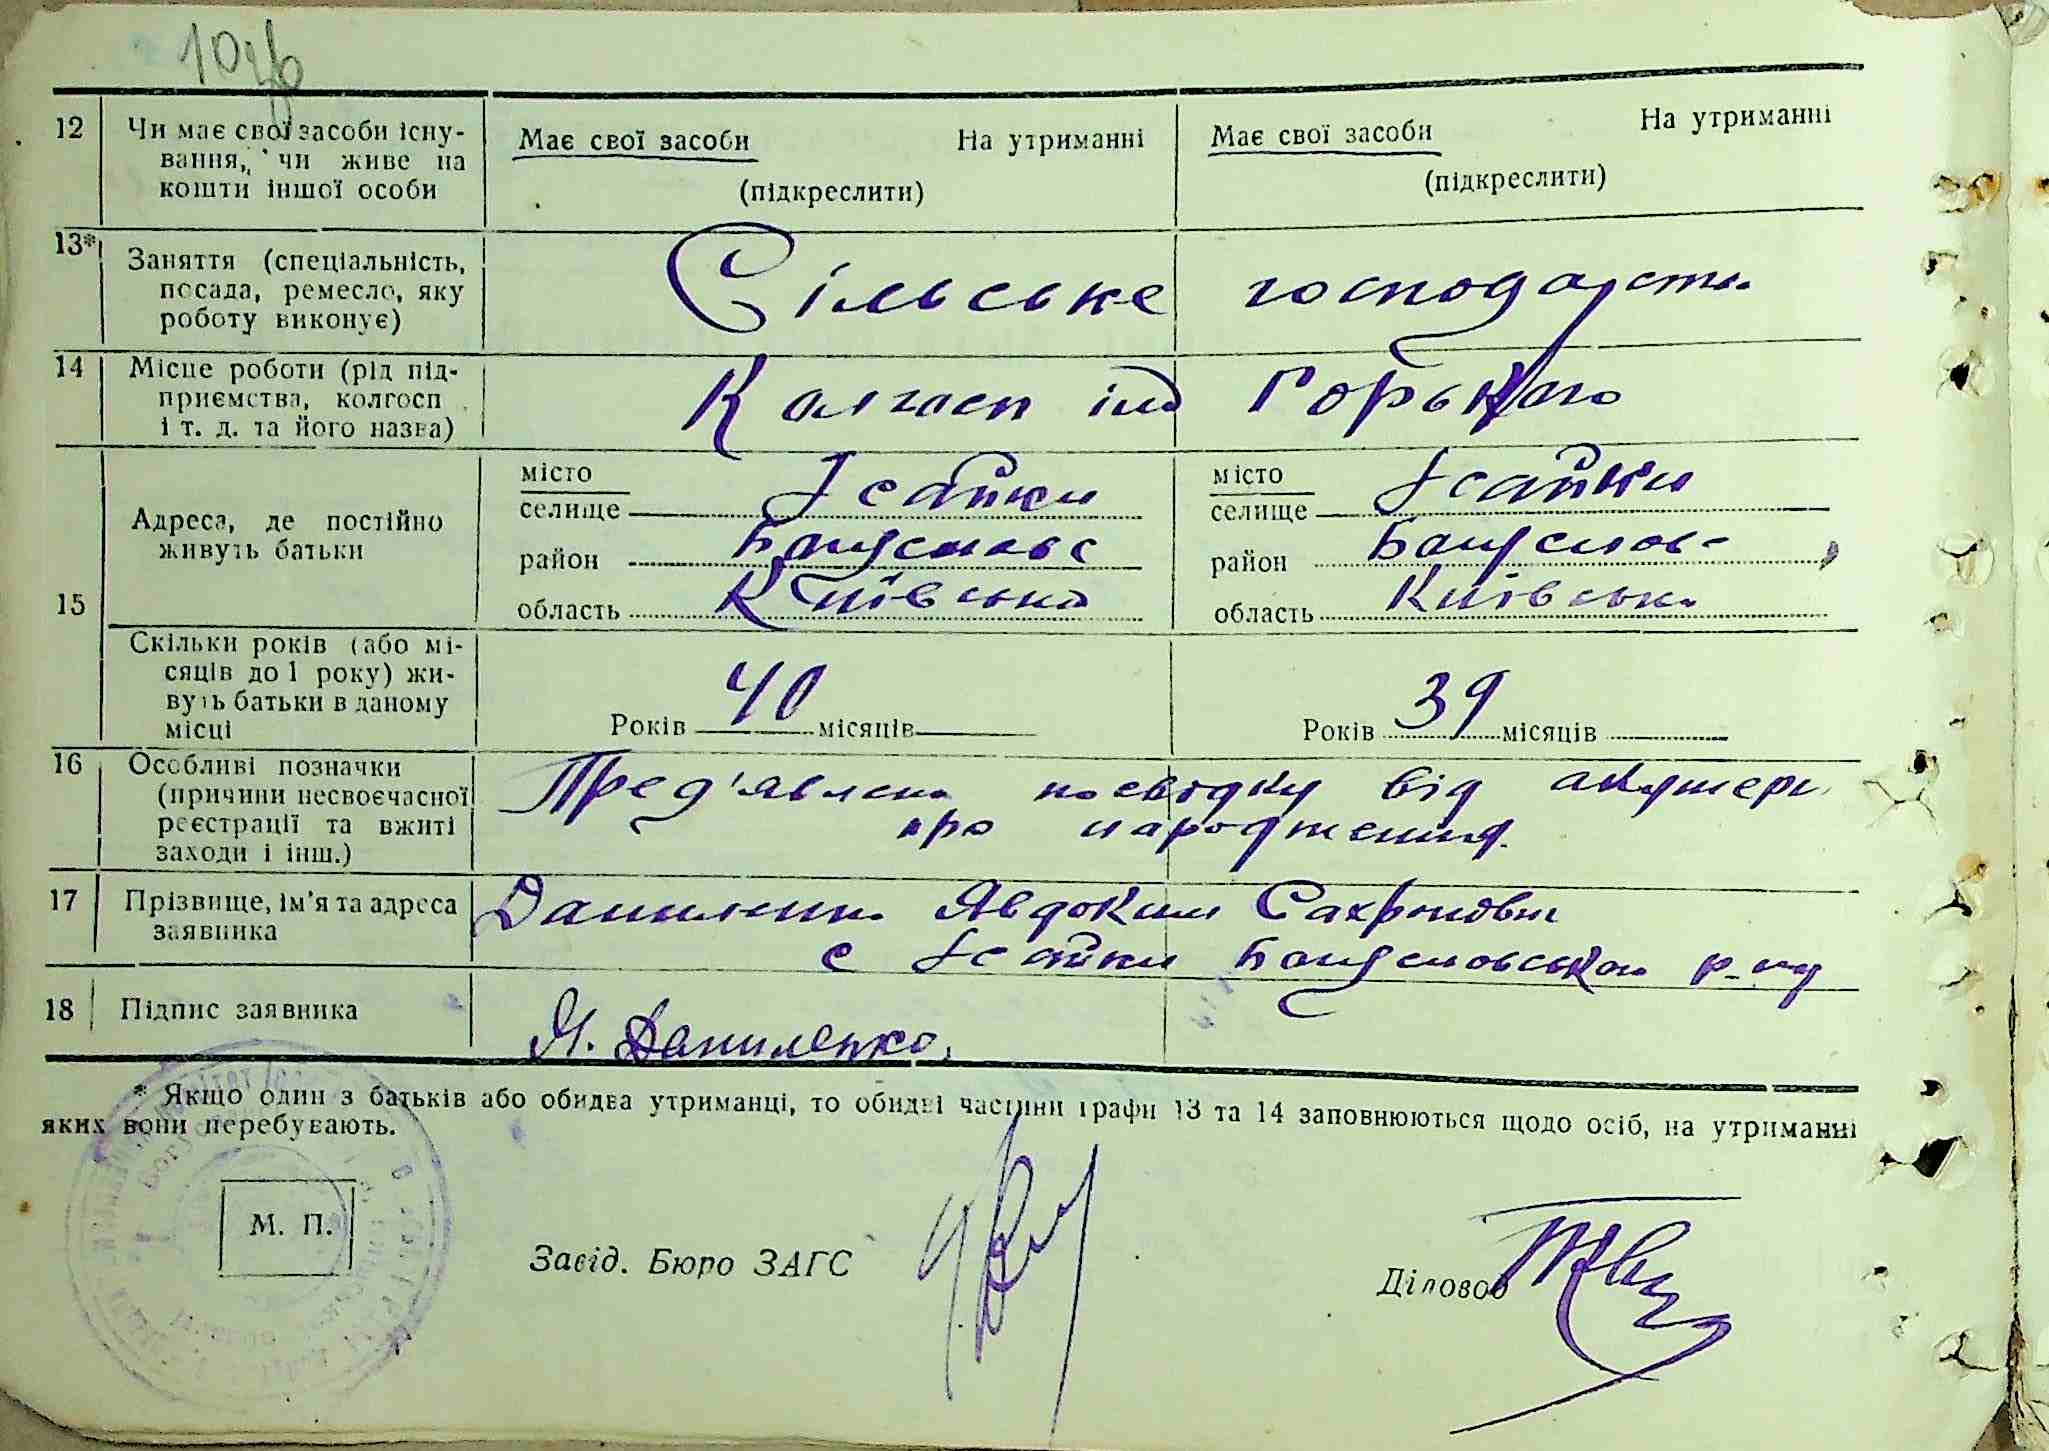 12 Чи має свої засоби існу-
вання, чи живе на
кошти іншої особи
Має свої засоби На утриманні
(підкреслити)
Має свої засоби На утриманні
(підкреслити)
13* Заняття (спеціальність,
посада, ремесло, яку
роботу виконує)
Сільське господарство
14 Місце роботи (рід під-
приємства, колгосп
і т. д. та його назва)
Колгосп ім Горького
15 Адреса, де постійно
живуть батьки
місто
селище Ісайки
район Богуславс
область Київська
місто
селище Ісайки
район Богуслов
область Київська
Скільки років (або мі-
сяців до 1 року) жи-
вуть батьки в даному
місці
Років 40 місяців
Років 39 місяців
16 Особливі позначки
(причини несвоєчасної
реєстрації та вжиті
заходи і інш.)
Пред'явлено посвідку від акушерк
про народження.
17 Прізвище, ім'я та адреса
заявника
Даниленко Явдоким Сахронович
с Ісайки Богуславського р-ну
18 Підпис заявника
Я. Даниленко.
* Якщо один з батьків або обидва утриманці, то обидві частини графи 13 та 14 заповнюються щодо осіб, на утриманні
яких вони перебувають.
М. П.
Завід. Бюро ЗАГС
Діловод